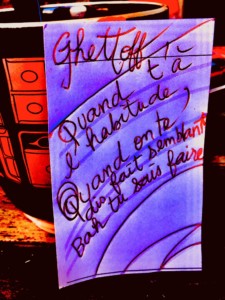 Ghettoff
t'à
Quand
l'habitude,
Quand on te
dis fait semblant
Bah tu sais faire